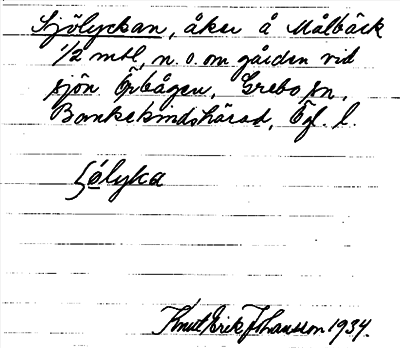 Sjölyckan, åker å Målbäck
1/2 mtl, n. o. om gården vid
sjön Örbågen, Grebo sn,
Bankekindshärad, Ögl. l.
ʃólyka
Knut Erik Johansson 1934.